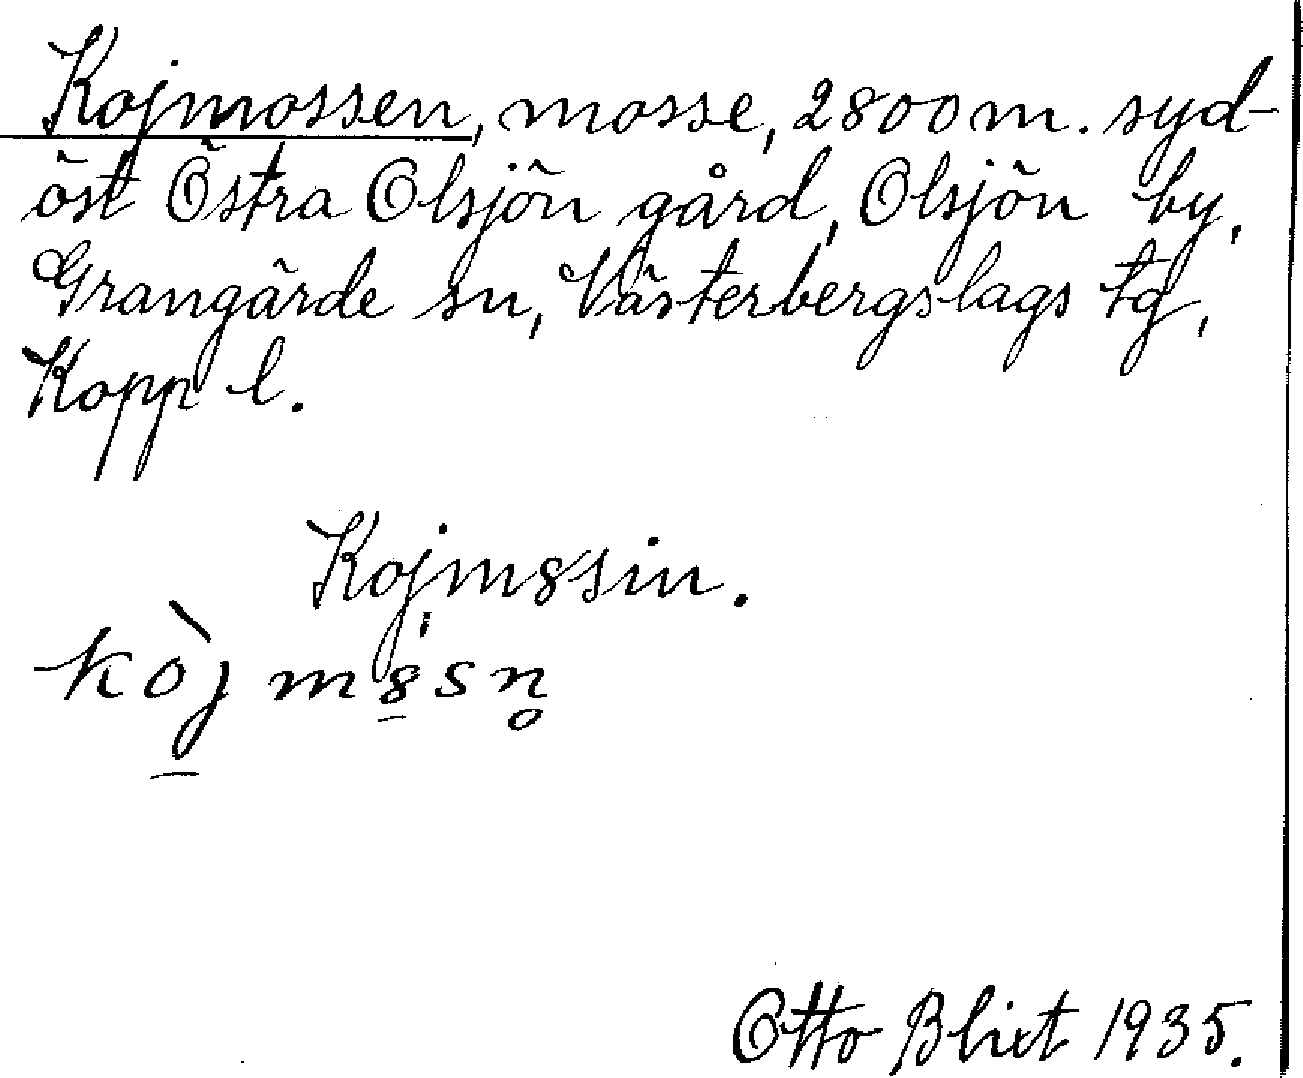 Kojmossen, mosse, 2800 m. syd-
öst Östra Olsjön gård, Olsjön by,
Grangärde sn, Västerbergslags tg,
Kopp l.
Kojm8sin.
kòj m8sn̥
Otto Blixt 1935.